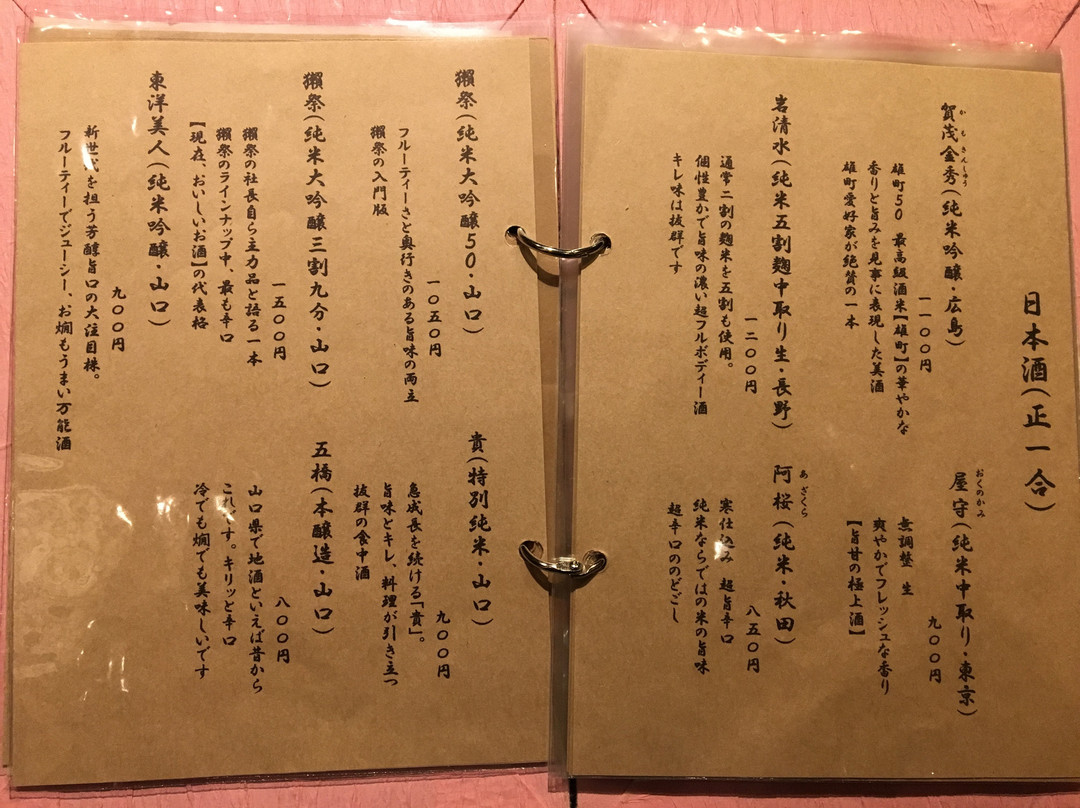 日本酒(正一合)
賀茂金秀(純米吟醸・広島)
かもきんしゅう
一一〇〇円
雄町50 最高級酒米【雄町】の華やかな
香りと旨みを見事に表現した美酒
雄町愛好家が絶賛の一本
屋守(純米中取り・東京)
おくのかみ
九〇〇円
無調整 生
爽やかでフレッシュな香り
【旨甘の極上酒】
岩清水(純米五割麹中取り生・長野)
一二〇〇円
通常二割の麹米を五割も使用。
個性豊かで旨味の濃い超フルボディー酒
キレ味は抜群です
阿桜(純米・秋田)
あざくら
八五〇円
寒仕込み 超旨辛口
純米ならではの米の旨味
超辛口ののどごし
獺祭(純米大吟醸50・山口)
一〇五〇円
フルーティーさと奥行きのある旨味の両立
獺祭の入門版
貴(特別純米・山口)
九〇〇円
急成長を続ける「貴」。
旨味とキレ、料理が引き立つ
抜群の食中酒
獺祭(純米大吟醸三割九分・山口)
一五〇〇円
獺祭の社長自ら主力品と語る一本
獺祭のラインナップ中、最も辛口
【現在、おいしいお酒】の代表格
五橋(本醸造・山口)
八〇〇円
山口県で地酒といえば昔から
これです。キリッと辛口
冷でも燗でも美味しいです
東洋美人(純米吟醸・山口)
九〇〇円
新世代を担う芳醇旨口の大注目株。
フルーティーでジューシー、お燗もうまい万能酒